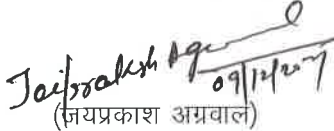 Jaiprakash Agrwal
09/12/2021
(जयप्रकाश अग्रवाल)